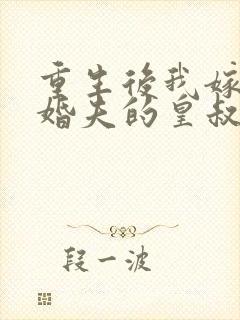 重生後我嫁
婚夫的皇叔
段一波